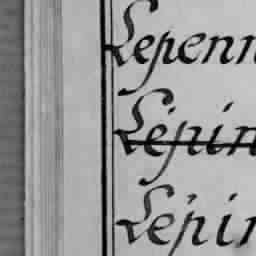 Lepenn
Lépin
Lépin